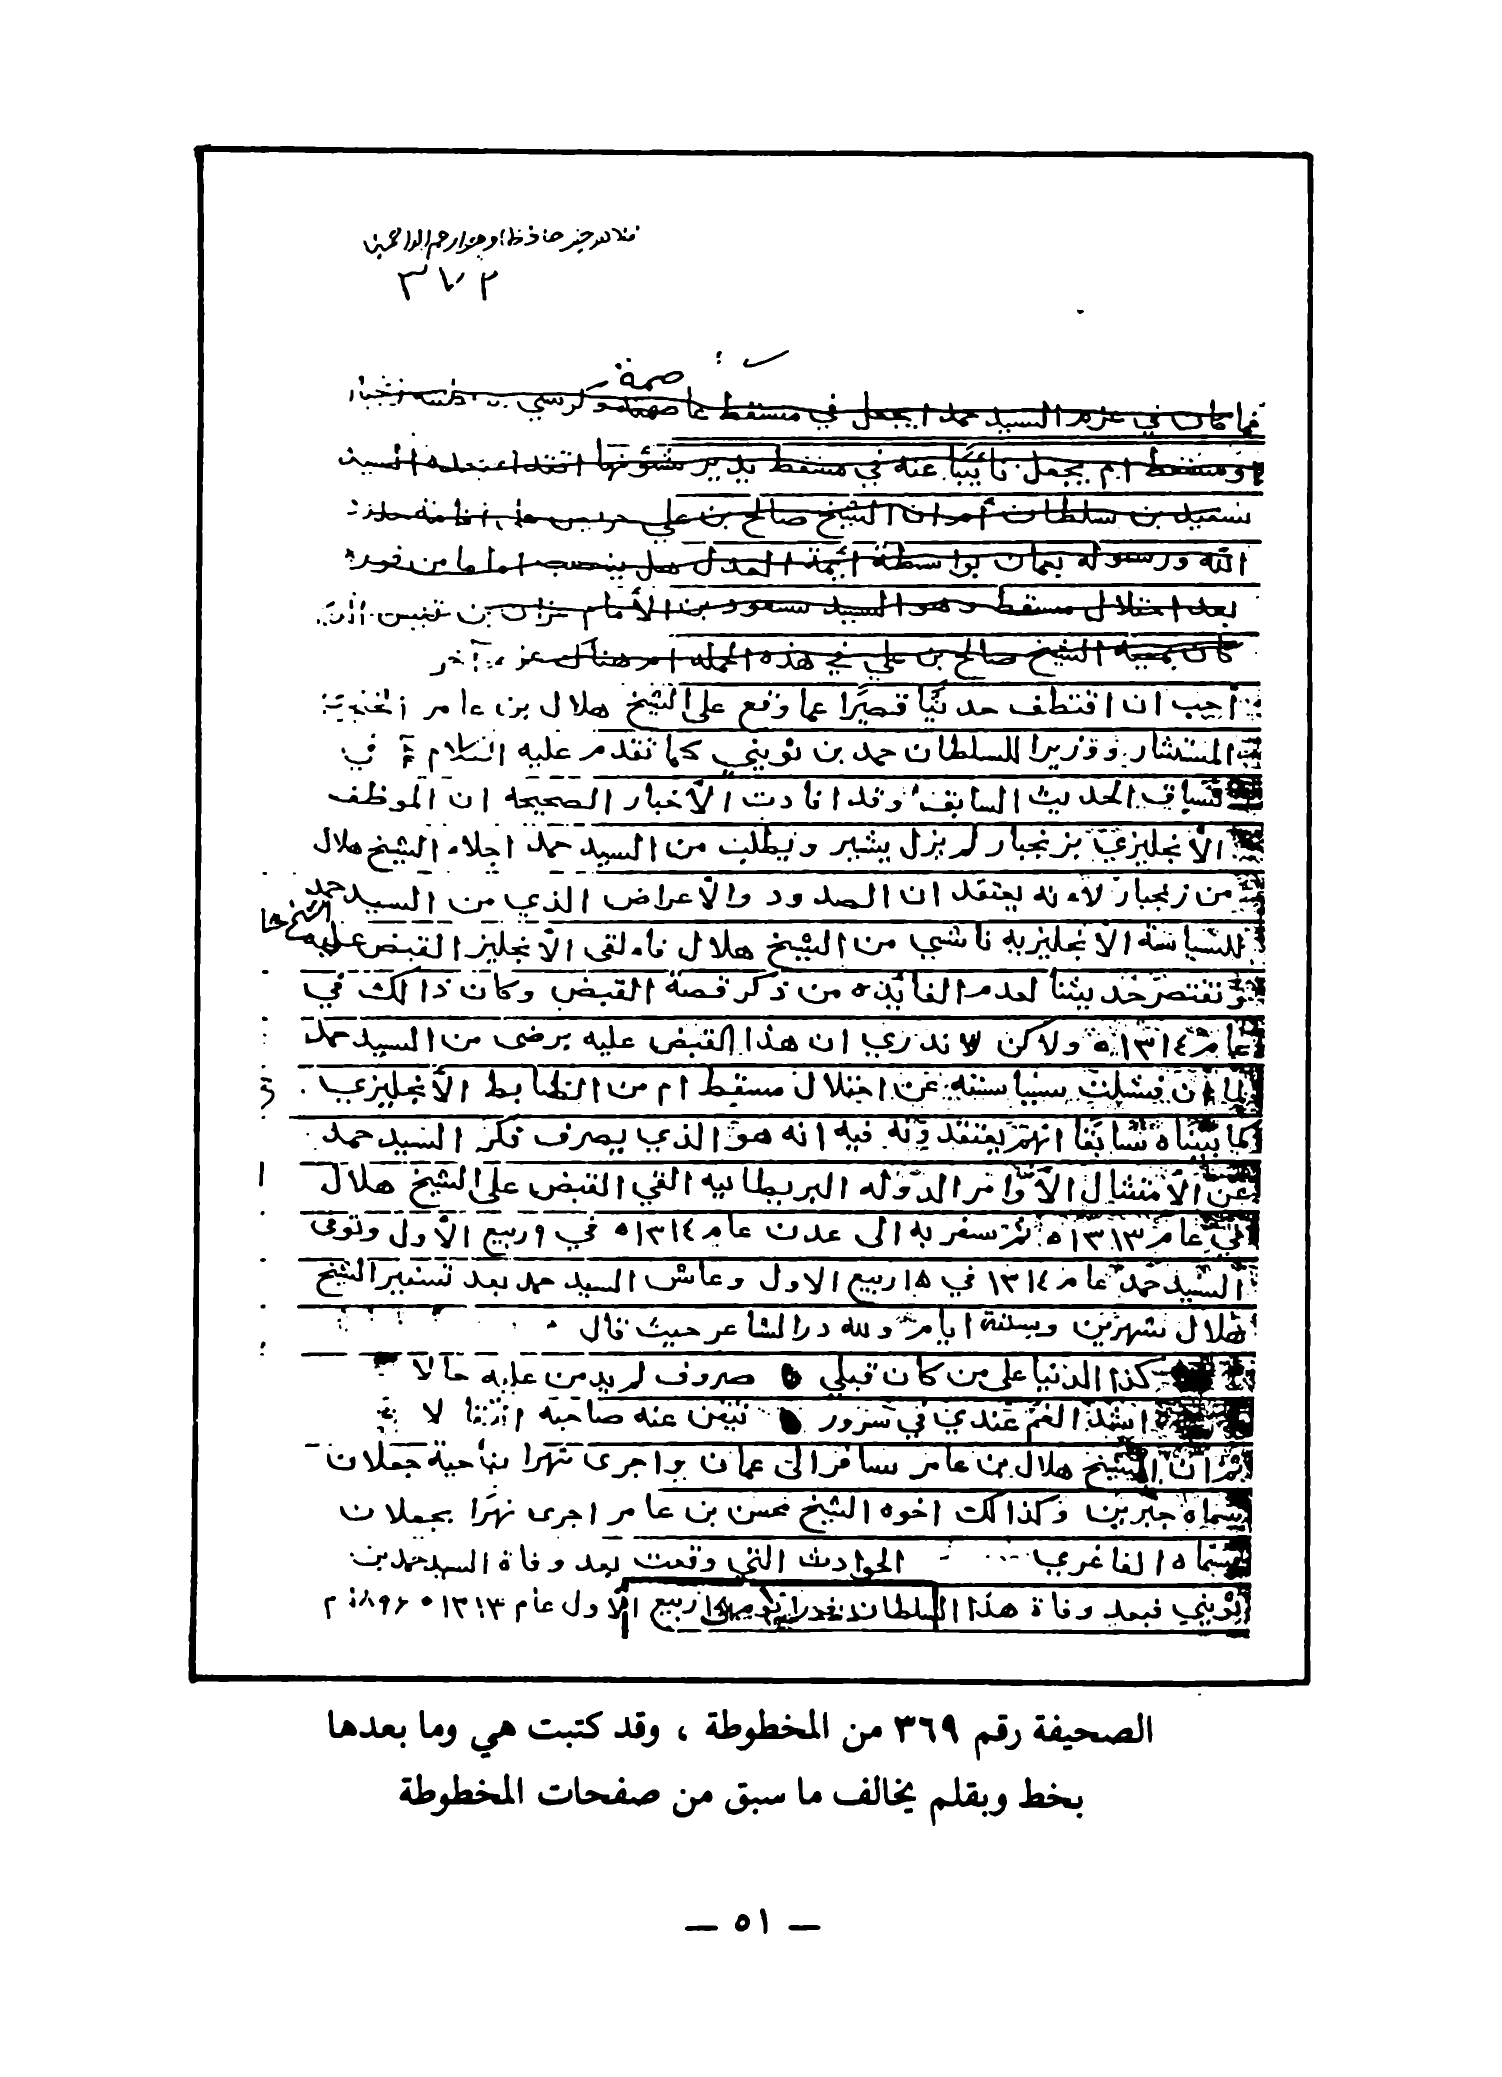 فالله خير حافظا وهو ارحم الراحمين
صمة
فما كان في عزم السيد حمد ايجعل في مسقط عاصمة
ومسقط ام يجعل نائبًا عنه في مسقط يدير شؤنها
سعيد بن سلطان أمران الشيخ صالح بن علي
الله ورسوله بعمان بواسطة ائمة العدل هل ينصب اماما من فوره
بعد احتلال مسقط وهو السيد سعود بن الأمام عزان بن قيس
كان بمعية الشيخ صالح بن علي في هذه الحمله ام هناك آخر
أحب ان اقتطف حديثًا قصيرًا عما وقع على الشيخ هلال بن عامر
المستشار ووزيرا للسلطان حمد بن ثويني كما تقدم عليه الكلام في
سياق الحديث السابق وقد افادت الأخبار الصحيحه ان الموظف
الأنجليزي بزنجبار لم يزل يشير ويطلب من السيد حمد اجلاء الشيخ هلال
من زنجبار لاءنه يعتقد ان الصدود والأعراض الذي من السيد حمد
للسياسة الانجليزيه ناشي من الشيخ هلال فاءلقى الأنجليز القبض عليه
ونقتصر حديثنا لعدم الفائده من ذكر قصة القبض وكان ذالك في
عام ١٣١٤ه ولاكن لاندري ان هذا القبض عليه برضى من السيد حمد
بأن فشلت سياسته عن احتلال مسقط ام من الظابط الأنجليزي
كما بيناه سابقا انهم يعتقدونه فيه انه هو الذي يصرف فكر السيد حمد
عن الأمتثال الأوامر الدوله البريطانيه القي القبض على الشيخ هلال
في عام ١٣١٣ه ثم سفر به الى عدن عام ١٣١٤ه في ٩ ربيع الأول وتوفي
السيد حمد عام ١٣١٤ في ١٥ ربيع الاول وعاش السيد حمد بعد تسفير الشيخ
هلال شهرين وستة ايام ولله در الشاعر حيث قال
كذا الدنيا على من كان قبلي صروف لم يدمن عليه حالا
اشد الغم عندي في سرور تيقن عنه صاحبه انتقالا
ثم ان الشيخ هلال بن عامر سافر الى عمان واجرى نهرا بناحية جعلان
سماه جبرين وكذالك اخوه الشيخ محسن بن عامر اجرى نهرًا بجعلان
سماه الفاغري الحوادث التي وقعت بعد وفاة السيد حمد بن
ثويني فبعد وفاة هذا السلطان ربيع الأول عام ١٣١٣ه ١٨٩٦م
الصحيفة رقم ٣٦٩ من المخطوطة ، وقد كتبت هي وما بعدها
بخط وبقلم يخالف ما سبق من صفحات المخطوطة
— ٥١ —